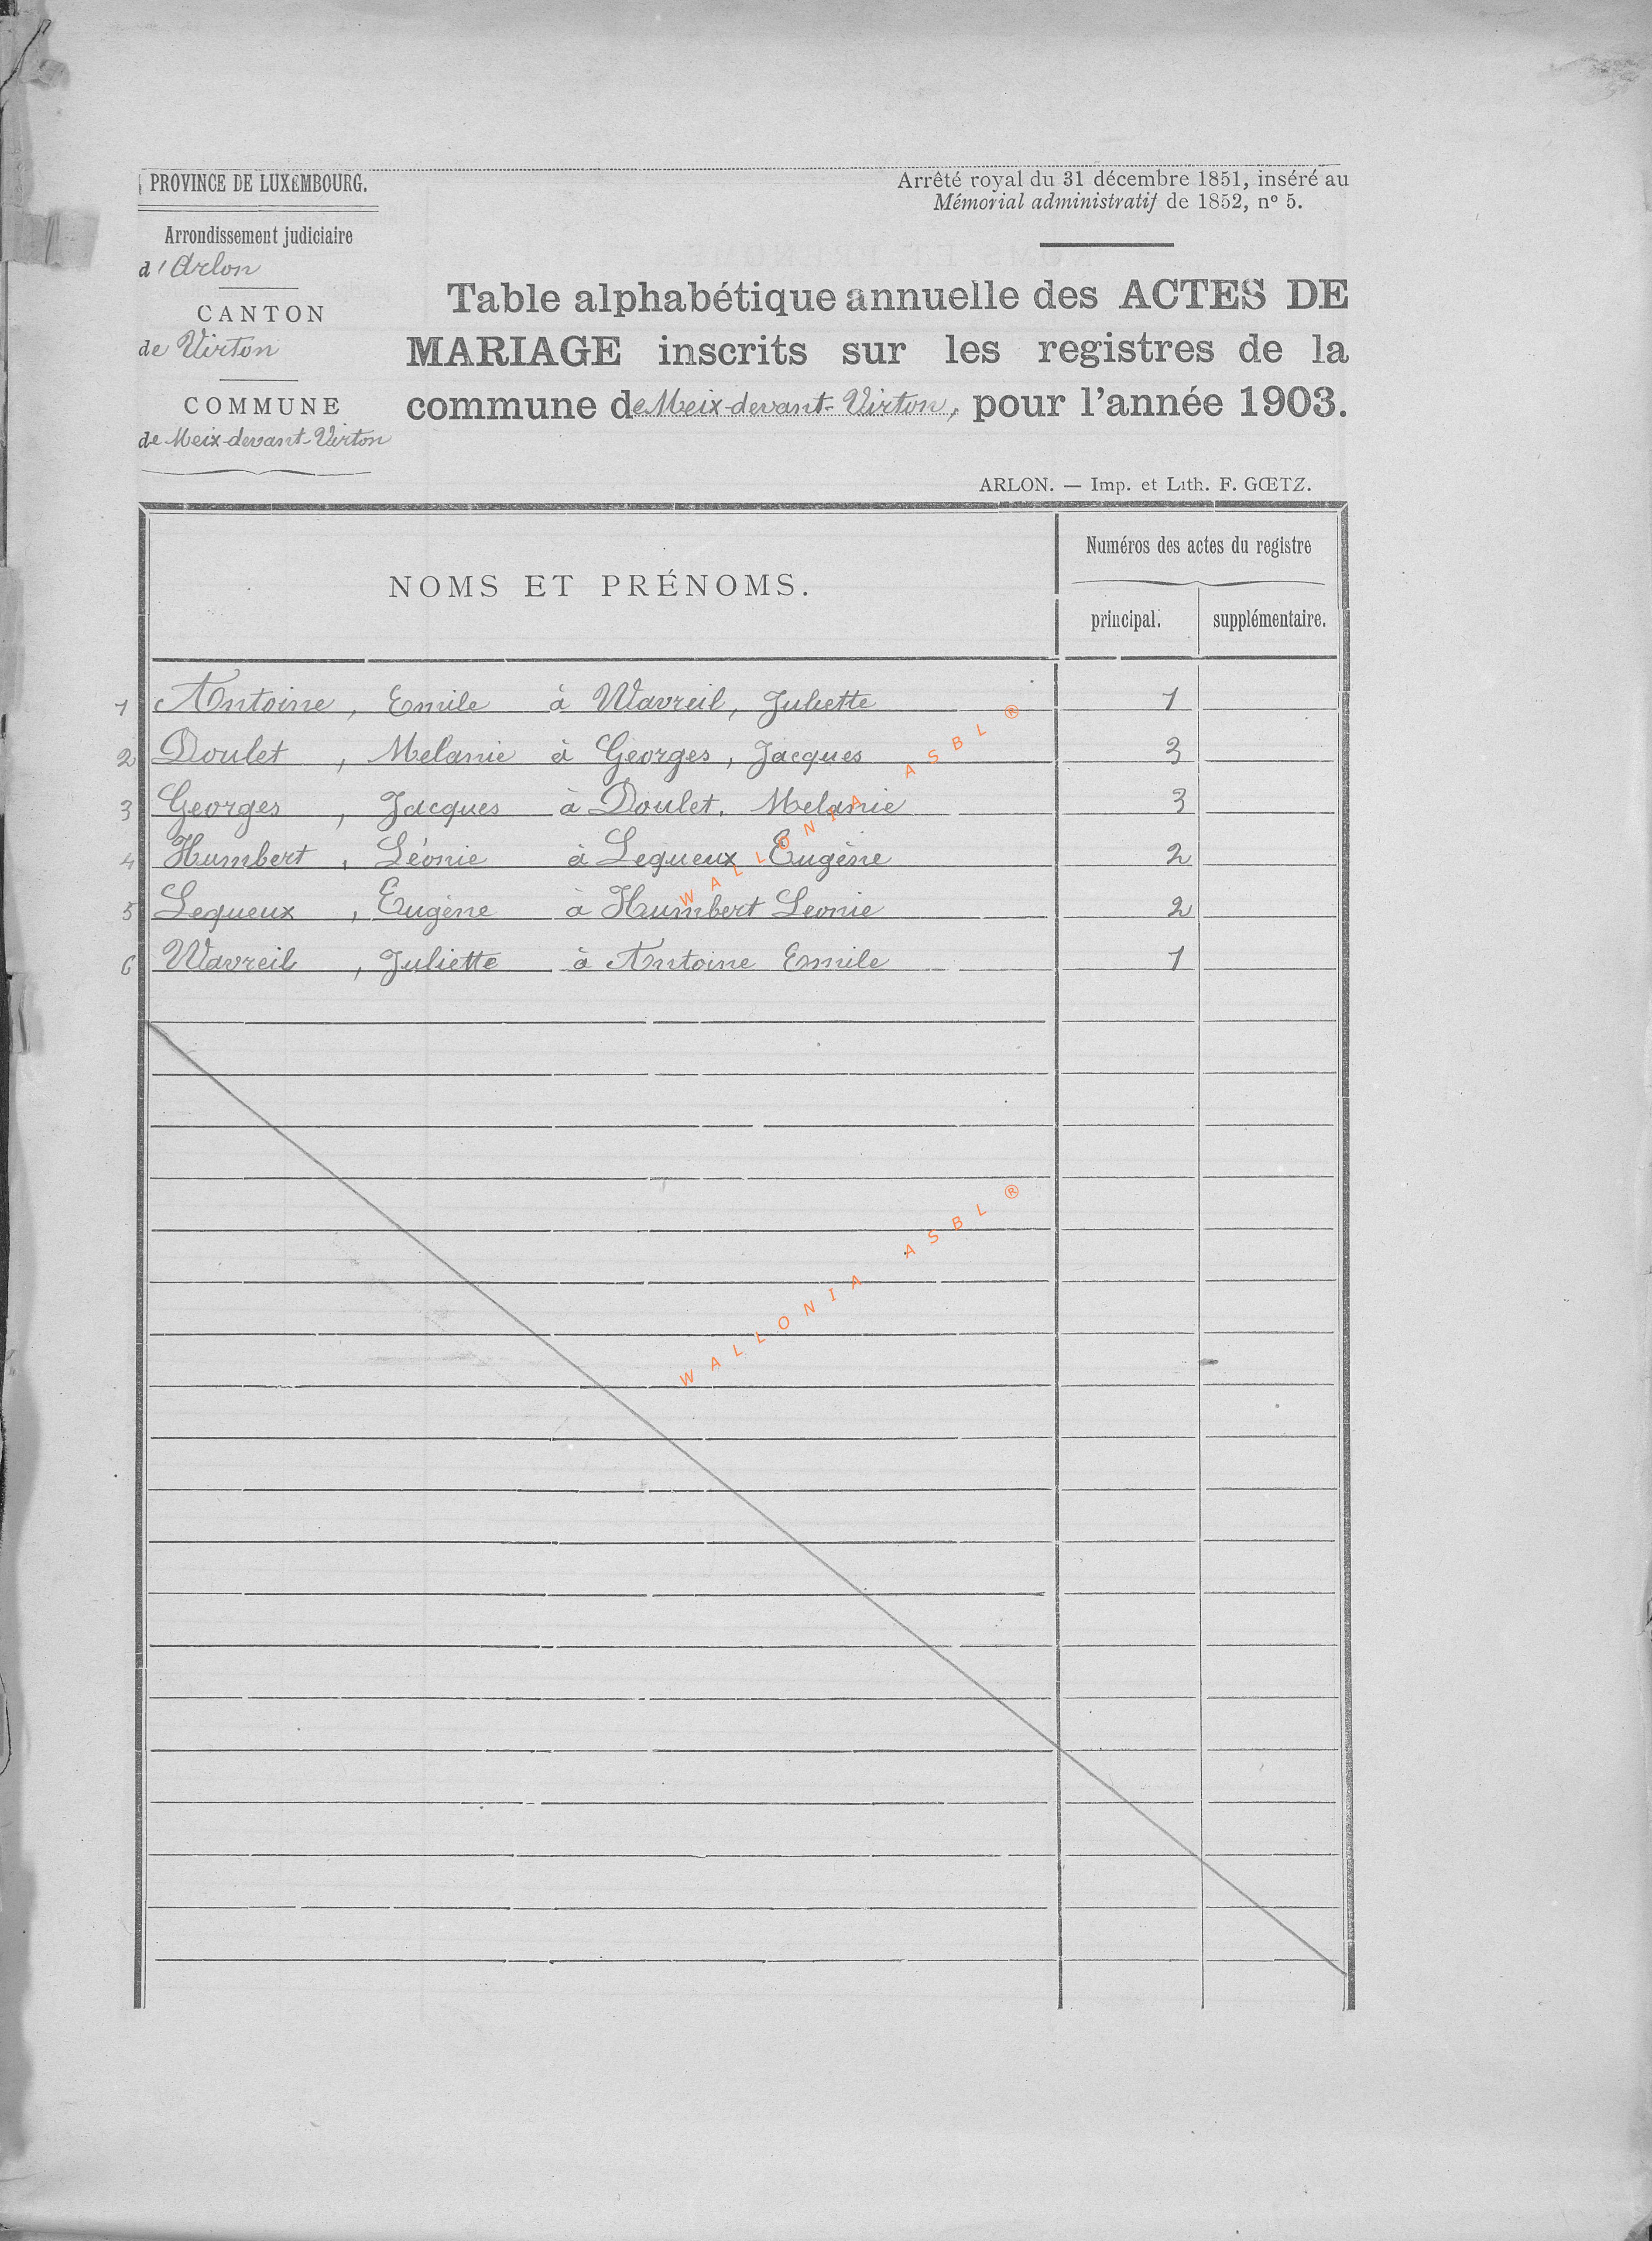 PROVINCE DE LUXEMBOURG.
Arrondissement judiciaire
d'Arlon
CANTON
de Virton
COMMUNE
de Meix-devant-Virton
Arrêté royal du 31 décembre 1851, inséré au
Mémorial administratif de 1852, nº 5.
Table alphabétique annuelle des ACTES DE
MARIAGE inscrits sur les registres de la
commune de Meix-devant-Virton, pour l'année 1903.
ARLON. — Imp. et Lith. F. GŒTZ.
NOMS ET PRÉNOMS.
Numéros des actes du registre
principal. supplémentaire.
1 Antoine, Emile à Wavreil, Juliette 1
2 Doulet, Melanie à Georges, Jacques 3
3 Georges, Jacques à Doulet. Melanie 3
4 Humbert, Léonie à Lequeux Eugène 2
5 Lequeux, Eugène à Humbert Leonie 2
6 Wavreil, Juliette à Antoine Emile 1
WALLONIA ASBL ®
WALLONIA ASBL ®